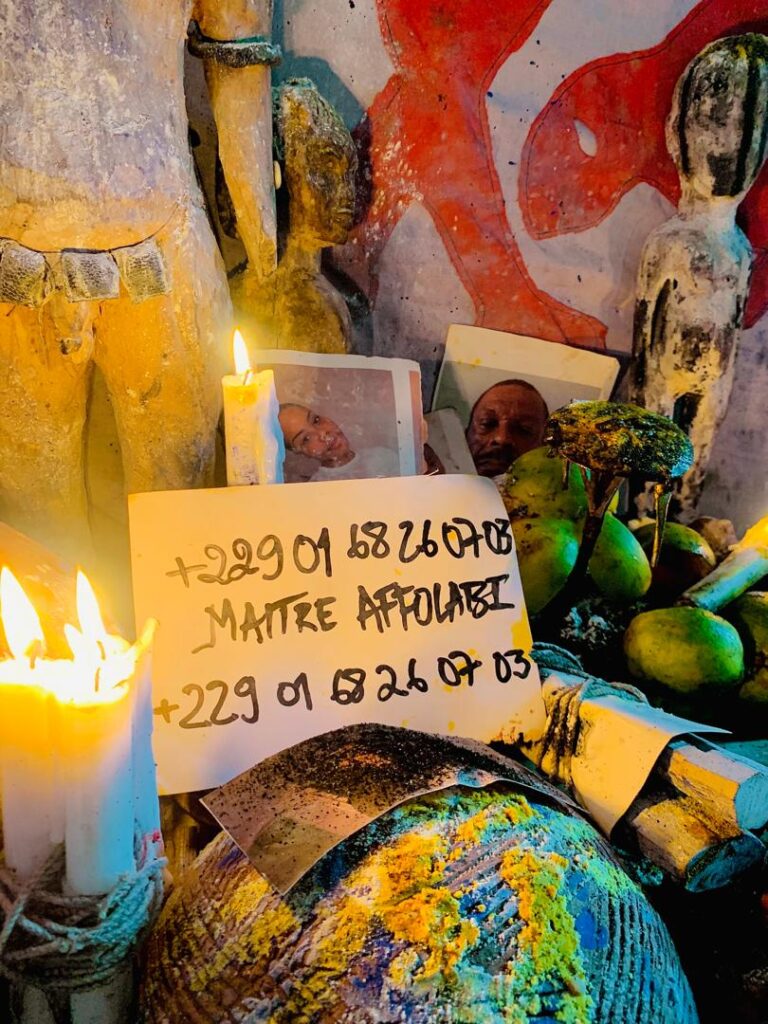 +229 01 68 26 07 03
MAITRE AFFOLABI
+229 01 68 26 07 03